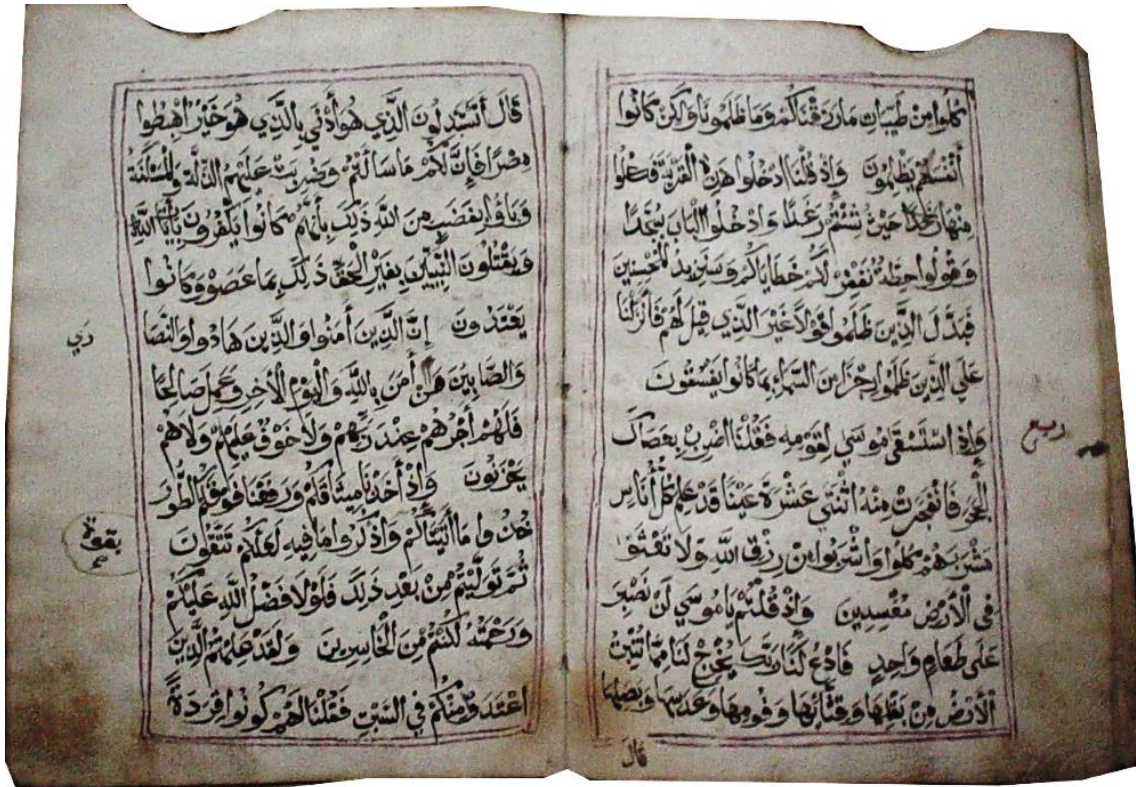 كُلُوا مِنْ طَيِّبَاتِ مَا رَزَقْنَاكُمْ وَمَا ظَلَمُونَا وَلَكِنْ كَانُوا
أَنْفُسَهُمْ يَظْلِمُونَ وَإِذْ قُلْنَا ادْخُلُوا هَذِهِ الْقَرْيَةَ فَكُلُوا
مِنْهَا حَيْثُ شِئْتُمْ رَغَدًا وَادْخُلُوا الْبَابَ سُجَّدًا
وَقُولُوا حِطَّةٌ نَغْفِرْ لَكُمْ خَطَايَاكُمْ وَسَنَزِيدُ الْمُحْسِنِينَ
فَبَدَّلَ الَّذِينَ ظَلَمُوا قَوْلًا غَيْرَ الَّذِي قِيلَ لَهُمْ فَأَنْزَلْنَا
عَلَى الَّذِينَ ظَلَمُوا رِجْزًا مِنَ السَّمَاءِ بِمَا كَانُوا يَفْسُقُونَ
وَإِذِ اسْتَسْقَى مُوسَي لِقَوْمِهِ فَقُلْنَا اضْرِبْ بِعَصَاكَ
الْحَجَرَ فَانْفَجَرَتْ مِنْهُ اثْنَتَيْ عَشْرَةَ عَيْنًا قَدْ عَلِمَ كُلُّ أُنَاسٍ
مَشْرَبَهُمْ كُلُوا وَاشْرَبُوا مِنْ رِزْقِ اللَّهِ وَلَا تَعْثَوْا
فِي الْأَرْضِ مُفْسِدِينَ وَإِذْ قُلْتُمْ يَا مُوسَي لَنْ نَصْبِرَ
عَلَى طَعَامٍ وَاحِدٍ فَادْعُ لَنَا رَبَّكَ يُخْرِجْ لَنَا مِمَّا تُنْبِتُ
الْأَرْضُ مِنْ بَقْلِهَا وَقِثَّائِهَا وَفُومِهَا وَعَدَسِهَا وَبَصَلِهَا
قَالَ
ربع
قَالَ أَتَسْتَبْدِلُونَ الَّذِي هُوَ أَدْنَي بِالَّذِي هُوَ خَيْرٌ اهْبِطُوا
مِصْرًا فَإِنَّ لَكُمْ مَا سَأَلْتُمْ وَضُرِبَتْ عَلَيْهِمُ الذِّلَّةُ وَالْمَسْكَنَةُ
وَبَاءُوا بِغَضَبٍ مِنَ اللَّهِ ذَلِكَ بِأَنَّهُمْ كَانُوا يَكْفُرُونَ بِآيَاتِ اللَّهِ
وَيَقْتُلُونَ النَّبِيِّينَ بِغَيْرِ الْحَقِّ ذَلِكَ بِمَا عَصَوْا وَكَانُوا
يَعْتَدُونَ إِنَّ الَّذِينَ آمَنُوا وَالَّذِينَ هَادُوا وَالنَّصَا
رَي
وَالصَّابِينَ مَنْ آمَنَ بِاللَّهِ وَالْيَوْمِ الْآخِرِ وَعَمِلَ صَالِحًا
فَلَهُمْ أَجْرُهُمْ عِنْدَ رَبِّهِمْ وَلَا خَوْفٌ عَلَيْهِمْ وَلَا هُمْ
يَحْزَنُونَ وَإِذْ أَخَذْنَا مِيثَاقَكُمْ وَرَفَعْنَا فَوْقَكُمُ الطُّورَ
خُذُوا مَا آتَيْنَاكُمْ وَاذْكُرُوا مَا فِيهِ لَعَلَّكُمْ تَتَّقُونَ
ثُمَّ تَوَلَّيْتُمْ مِنْ بَعْدِ ذَلِكَ فَلَوْلَا فَضْلُ اللَّهِ عَلَيْكُمْ
وَرَحْمَتُهُ لَكُنْتُمْ مِنَ الْخَاسِرِينَ وَلَقَدْ عَلِمْتُمُ الَّذِينَ
اعْتَدَوْا مِنْكُمْ فِي السَّبْتِ فَقُلْنَا لَهُمْ كُونُوا قِرَدَةً